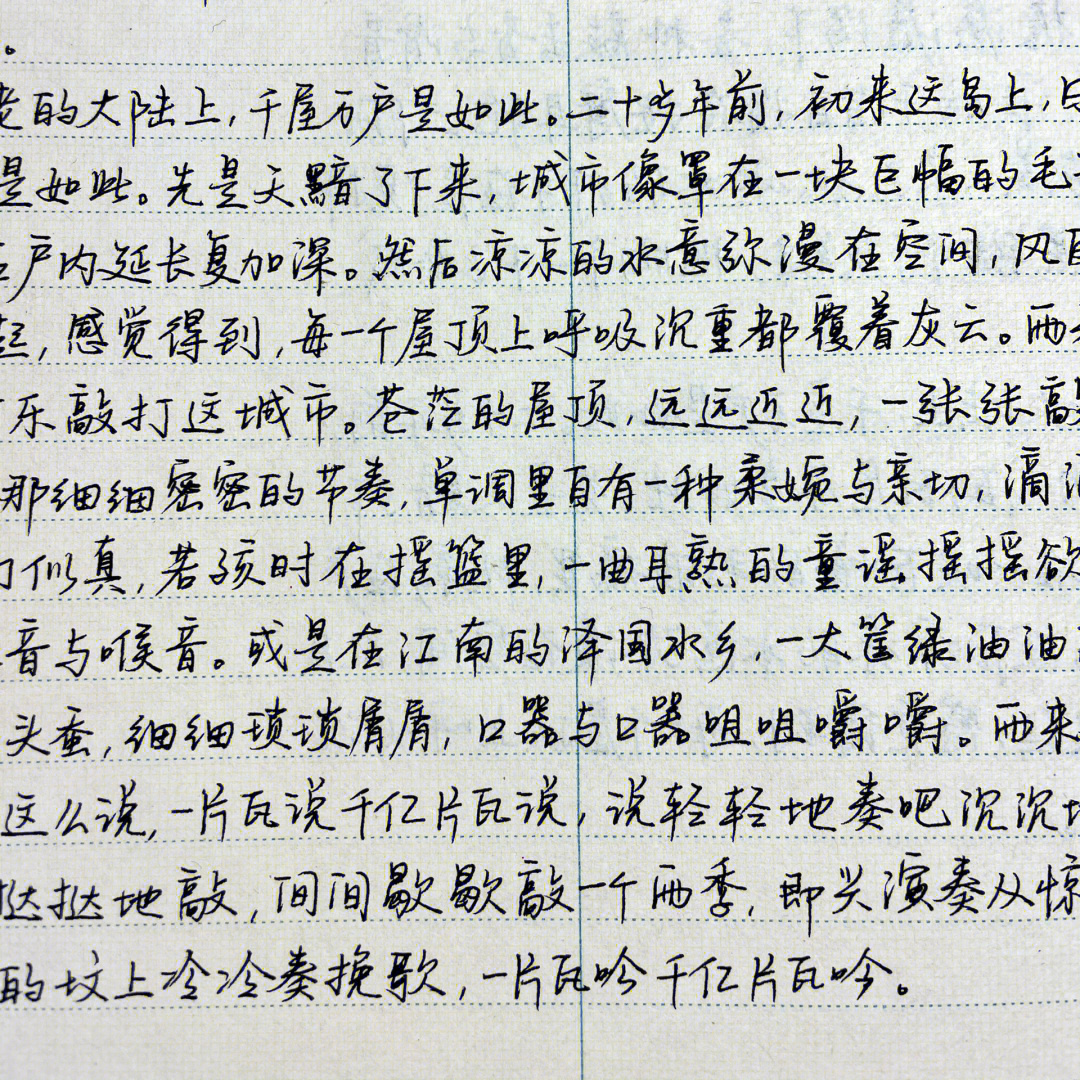 。
老的大陆上，千屋万户是如此。二十多年前，初来这岛上，日
是如此。先是天黯了下来，城市像罩在一块巨幅的毛
户内延长复加深。然后凉凉的水意弥漫在空间，风自
起，感觉得到，每一个屋顶上呼吸沉重都覆着灰云。雨
乐敲打这城市。苍茫的屋顶，远远近近，一张张敲
那细细密密的节奏，单调里自有一种柔婉与亲切，滴滴
幻似真，若孩时在摇篮里，一曲耳熟的童谣摇摇欲
音与喉音。或是在江南的泽国水乡，一大筐绿油油
头蚕，细细琐琐屑屑，口器与口器咀咀嚼嚼。雨来
这么说，一片瓦说千亿片瓦说，说轻轻地奏吧沉沉地
挞挞地敲，间间歇歇敲一个雨季，即兴演奏从惊
的坟上冷冷奏挽歌，一片瓦吟千亿片瓦吟。